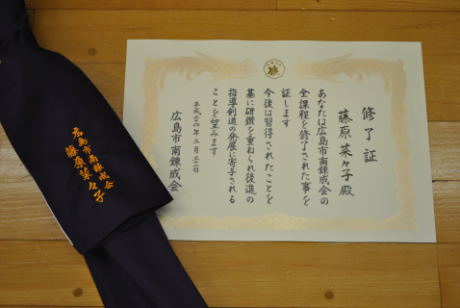 修了証
藤原菜々子殿
あなたは広島市南錬成会の
全課程を修了された事を
証します
今後は習得されたことを
基に研鑽を重ねられ後進の
指導剣道の発展に寄与される
ことを望みます
平成二四年三月三一日
広島市南錬成会
広島市南錬成会
藤原菜々子